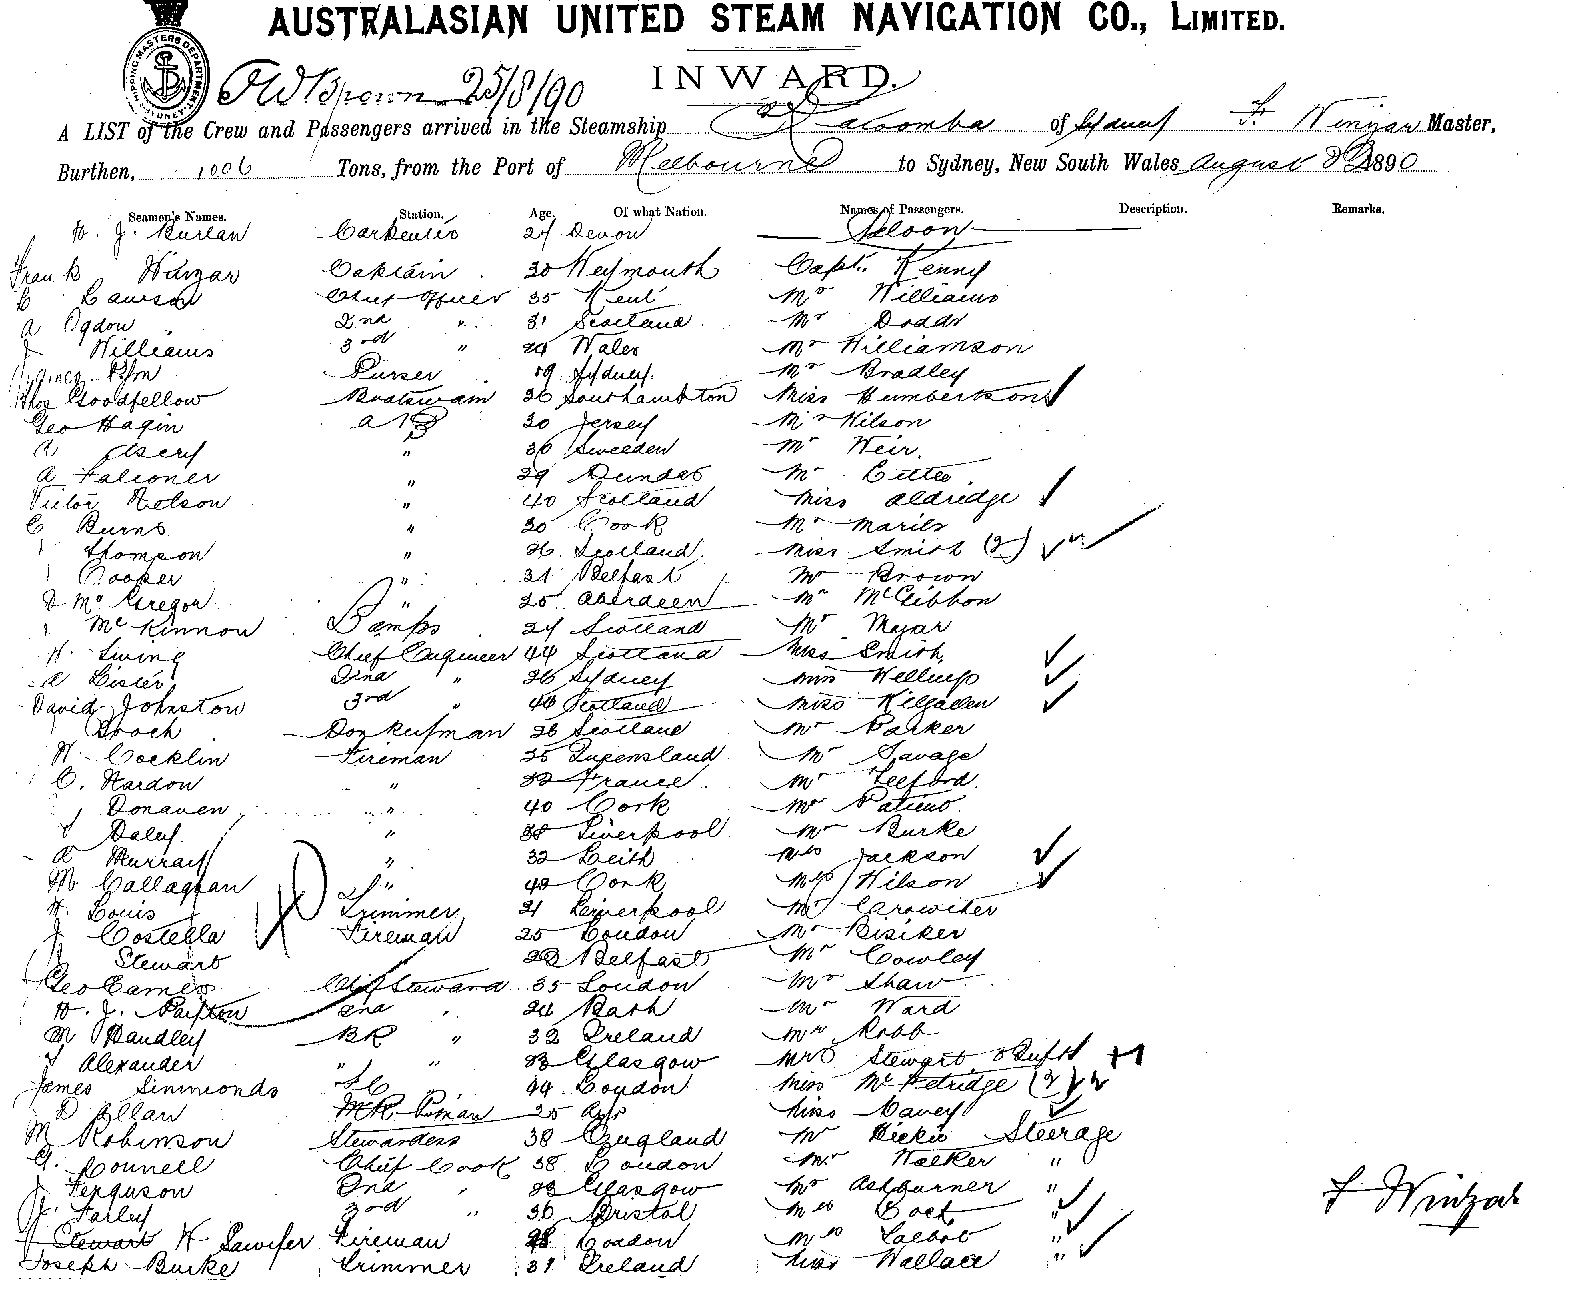 AUSTRALASIAN UNITED STEAM NAVIGATION CO., LIMITED.
INWARD.
25/8/90
A LIST of the Crew and Passengers arrived in the Steamship of Sydney F Winzar Master,
Burthen, 1006 Tons, from the Port of Melbourne to Sydney, New South Wales August 1890
Seamen's Names. Station. Age. Of what Nation. Names of Passengers. Description. Remarks.
J. 27 Devon Saloon
Frank Winzar Captain 30 Weymouth Capt. Kenny
Lawson Chief Officer 35 Kent Mr Williams
A Ogdon 2nd " 31 Scotland Mr Dodds
J Williams 3rd " 29 Wales Mr Williamson
Purser 19 Sydney Mr Bradley
Thos Goodfellow Boatswain 36 Southampton Miss Humberkson
Geo Hagin AB 30 Jersey Mr Wilson
" 36 Sweeden Mr Weir
A Falconer " 29 Dundee Mr
Victor Nelson " 40 Scotland Miss Aldredge
C Burns " 30 Mr
Thompson " 26 Scotland Miss Smith (2)
Cooper " 31 Belfast Mr Brown
McGregor " 25 Aberdeen Mr McGibbon
McKinnon Lamps 27 Scotland Mr
Chief Engineer 44 Scotland Miss Smith
Lister 2nd " 26 Sydney Miss
David Johnston 3rd " 40 Scotland Miss
Donkeyman 26 Scotland Mr Parker
Fireman 25 Queensland Mr Savage
C. Hardon " France Mr
Donaven " 40 Cork Mr
J Daley " 38 Liverpool Mr Burke
Murray " 32 Leith Mrs Jackson
M Callaghan " 40 Cork Mrs Wilson
Louis Trimmer 21 Liverpool Mr Crowther
J Costella Fireman 25 London Mr
Stewart Belfast Mr Cowley
Geo Eames Chief Steward 35 London Mr Shaw
J. 2nd " Bath Mr Ward
M Handley BR " 32 Ireland Mr Robb
J Alexander " " 33 Glasgow Mrs Stewart
James Simmonds 44 London Miss McPetridge (2)
Allan 25 Ayr Miss
M Robinson Stewardess 38 England Mr Hickie Steerage
Connell Chief Cook 38 London Mr Walker "
J Ferguson 2nd " 33 Glasgow Mr Ashburner "
Farley 3rd " 36 Bristol Mrs "
Stewart Fireman 28 London Mrs Talbot "
Joseph Burke Trimmer 31 Ireland Miss Wallace "
F Winzar